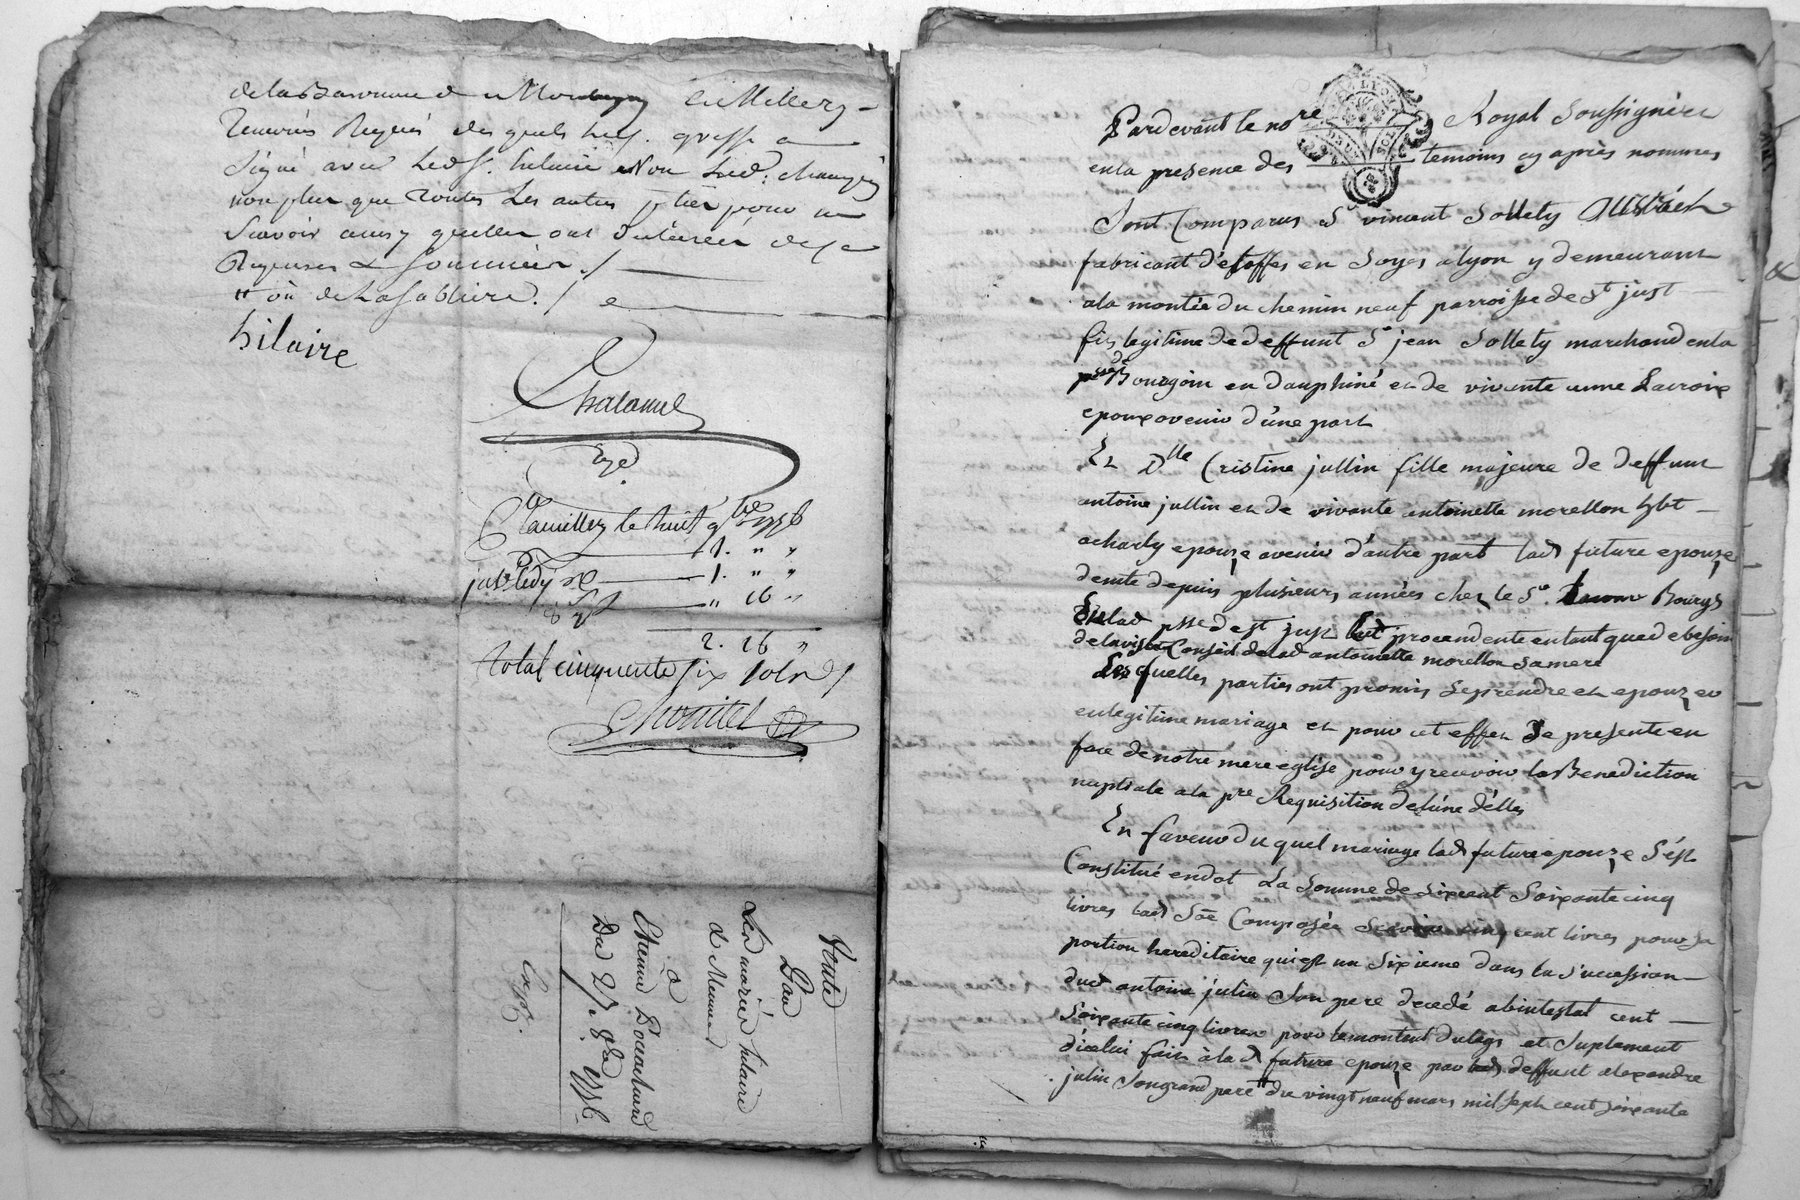 de la Baronnie de Montagny et Millery
Temoins Requis
signé avec led Sr. hilaire et non lad. 
non plus que toutes les autres pties pour ne
scavoir ainsy quelles ont declaré de ce
Requises & sommées ./.
ou de la sabliere ./.
hilaire
Chalamel
Roye
le huit 9bre 1756
1. " "
1. " "
" 16 "
2. 16 "
total cinquante six sols
Vente
Par
Les mariés hilaire
&
à
Etienne
Du 27e. 8bre 1756
Pardevant le nore Royal soussigné et
en la presence des temoins cy après nommés
sont Comparus sr vincent Sollety
fabricant d'étoffes en soyes a lyon y demeurant
a la montée du chemin neuf parroisse de st just
fils legitime de deffunt sr jean Sollety marchand en la
psse de Bourgoin en dauphiné et de vivante anne Lacroix
epoux avenir d'une part
Et Dlle Cristine jullin fille majeure de deffunt
antoine jullin et de vivante antoinette morellon hbt
a charly epouze avenir d'autre part lad future epouze
demte depuis plusieurs années chez le sr. Bourgs
sur lad psse de st just lad procendente en tant que de besoin
de lavis & Conseil de lad antoinette morellon sa mere
Lesquelles parties ont promis se prendre et epouzer
en legitime mariage et pour cet effet se presenter en
face de notre mere eglise pour y recevoir la Benediction
nuptiale a la pre Requisition de lúne délles
En faveur du quel mariage lad future epouze s'est
Constitué en dot La somme de six cent soixante cinq
livres lad soe Composée scavoir cinq cent livres pour sa
portion hereditaire qui est un sixieme dans la succession
dud antoine julin son pere decedé abintestat cent
soixante cinq livres pour le montant du legs et suplement
d'icelui fait à la d future epouze par deffunt alexandre
julin son grand pere du vingt neuf mars mil sept cent soixante